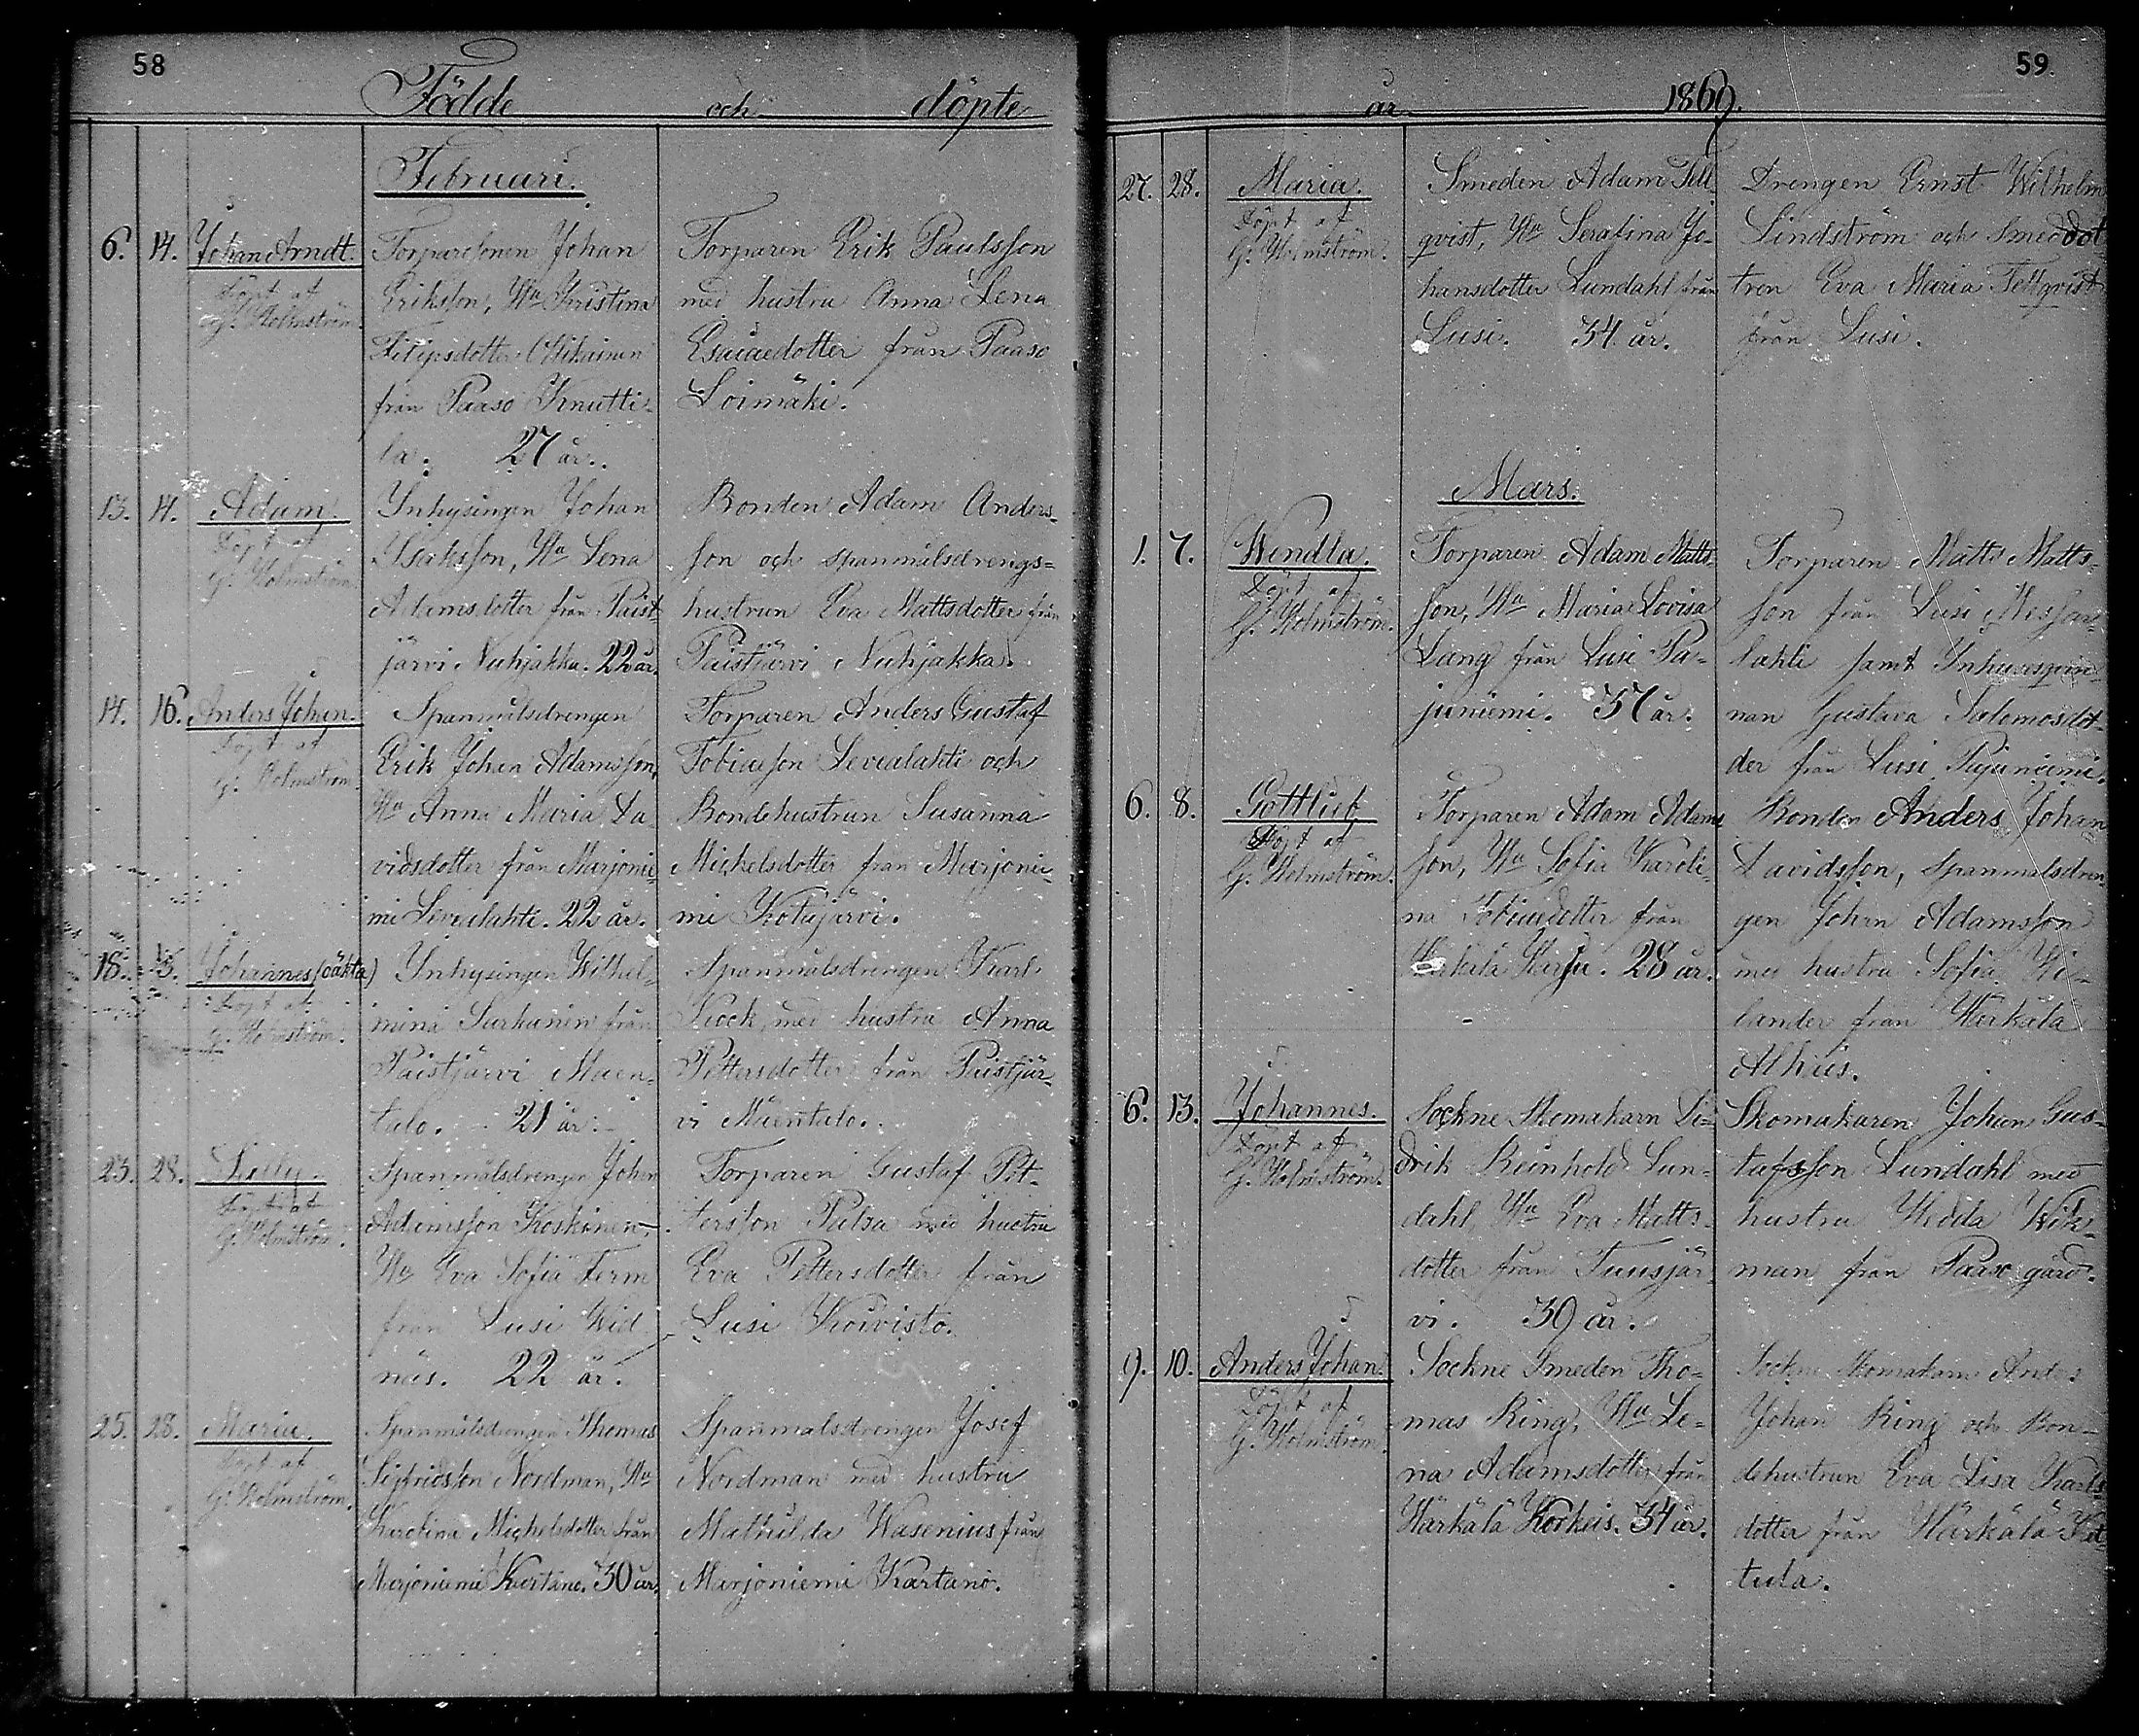 58
Födde och döpte
Februari.
6. 14. Johan Arndt.
Döpt af
G. Holmström.
Torparesonen Johan
Eriksson, Hu Kristina
Filipsdotter
från Paaso Knutti-
la. 27 år.
Torparen Erik Paulsson
med hustru Anna Lena
Esaiaedotter från Paaso
Loimäki.
13. 14. Adam.
Döpt af
G. Holmström
Inhysingen Johan
Isaksson, Hu Lena
Adamsdotter från Paist-
järvi Nuhjakka. 22 år.
Bonden Adam Anders-
son och spanmålsdrengs-
hustrun Eva Mattsdotter från
Paistjärvi Nuhjakka.
14. 16. Anders Johan.
Döpt af
G. Holmström
Spanmålsdrengen
Erik Johan Adamsson,
Hu Anna Maria Da-
vidsdotter från Marjonie-
mi Levealahti. 22 år.
Torparen Anders Gustaf
Tobiasson Levealahti och
Bondehustrun Susanna
Michelsdotter från Marjonie-
mi Kotajärvi.
18. Johannes (oäkta)
Döpt af
G. Holmström.
Inhysingen Wilhel-
mina Surkunin från
Paistjärvi Maen-
talo. 21 år.
Spanmålsdrengen Karl
Kock med hustru Anna
Pettersdotter från Paistjär-
vi Mäentalo.
23. 28.
Döpt af
G. Holmström.
Spanmålsdrengen Johan
Adamsson Koskinen,
Hu Eva Sofia Ferm
från Lusi Wid-
näs. 22 år.
Torparen Gustaf Pet-
tersson Pulsa med hustru
Eva Pettersdotter från
Lusi Koivisto.
25. 28. Maria.
Döpt af
G. Holmström.
Spanmålsdrengen Thomas
Sigfridsson Nordman, Hu
Karolina Michelsdotter från
Marjoniemi Kartano. 30 år.
Spanmålsdrengen Josef
Nordman med hustru
Mathilda Wasenius från
Marjoniemi Kartano.
59.
år 1869.
27. 28. Maria.
Döpt af
G. Holmström.
Smeden Adam Tell-
qvist, Hu Serafina Jo-
hansdotter Lundahl från
Lusi. 34 år.
Drengen Ernst Wilhelm
Lindström och Smeddot-
tren Eva Maria Tellqvist
från Lusi.
Mars.
1. 7. Wendla.
Döpt af
G. Holmström.
Torparen Adam Matts-
son, Hu Maria Lovisa
Lång från Lusi Pa-
juniemi. 37 år.
Torparen Matts Matts-
son från Lusi
lahti samt Inhysesqvin-
nan Gustava Salomosdot-
der från Lusi Pajuniemi.
6. 8. Gottlieb
Döpt af
G. Holmström.
Torparen Adam Adams-
son, Hu Sofia Karoli-
na Tobiaedotter från
28 år.
Bonden Anders Johan
Davidsson, spanmålsdren-
gen Johan Adamsson
med hustru Sofia Wi-
lander från Härkälä
Alhais.
6. 13. Johannes.
Döpt af
G. Holmström.
Sockne Skomakarn Di-
drik Reinhold Lun-
dahl, Hu Eva Matts-
dotter från Tuusjär-
vi. 39 år.
Skomakaren Johan Gus-
tafsson Lundahl med
hustru Hedda Wik-
man från Paaso gård.
9. 10. Anders Johan.
Döpt af
G. Holmström.
Sockne Smeden Tho-
mas Ring, Hu Le-
na Adamsdotter från
Härkälä Korkeis. 34 år.
Sockne Skomakarn Anders
Johan Ring och Bon-
dehustrun Eva Lisa Karls-
dotter från Härkälä
tula.